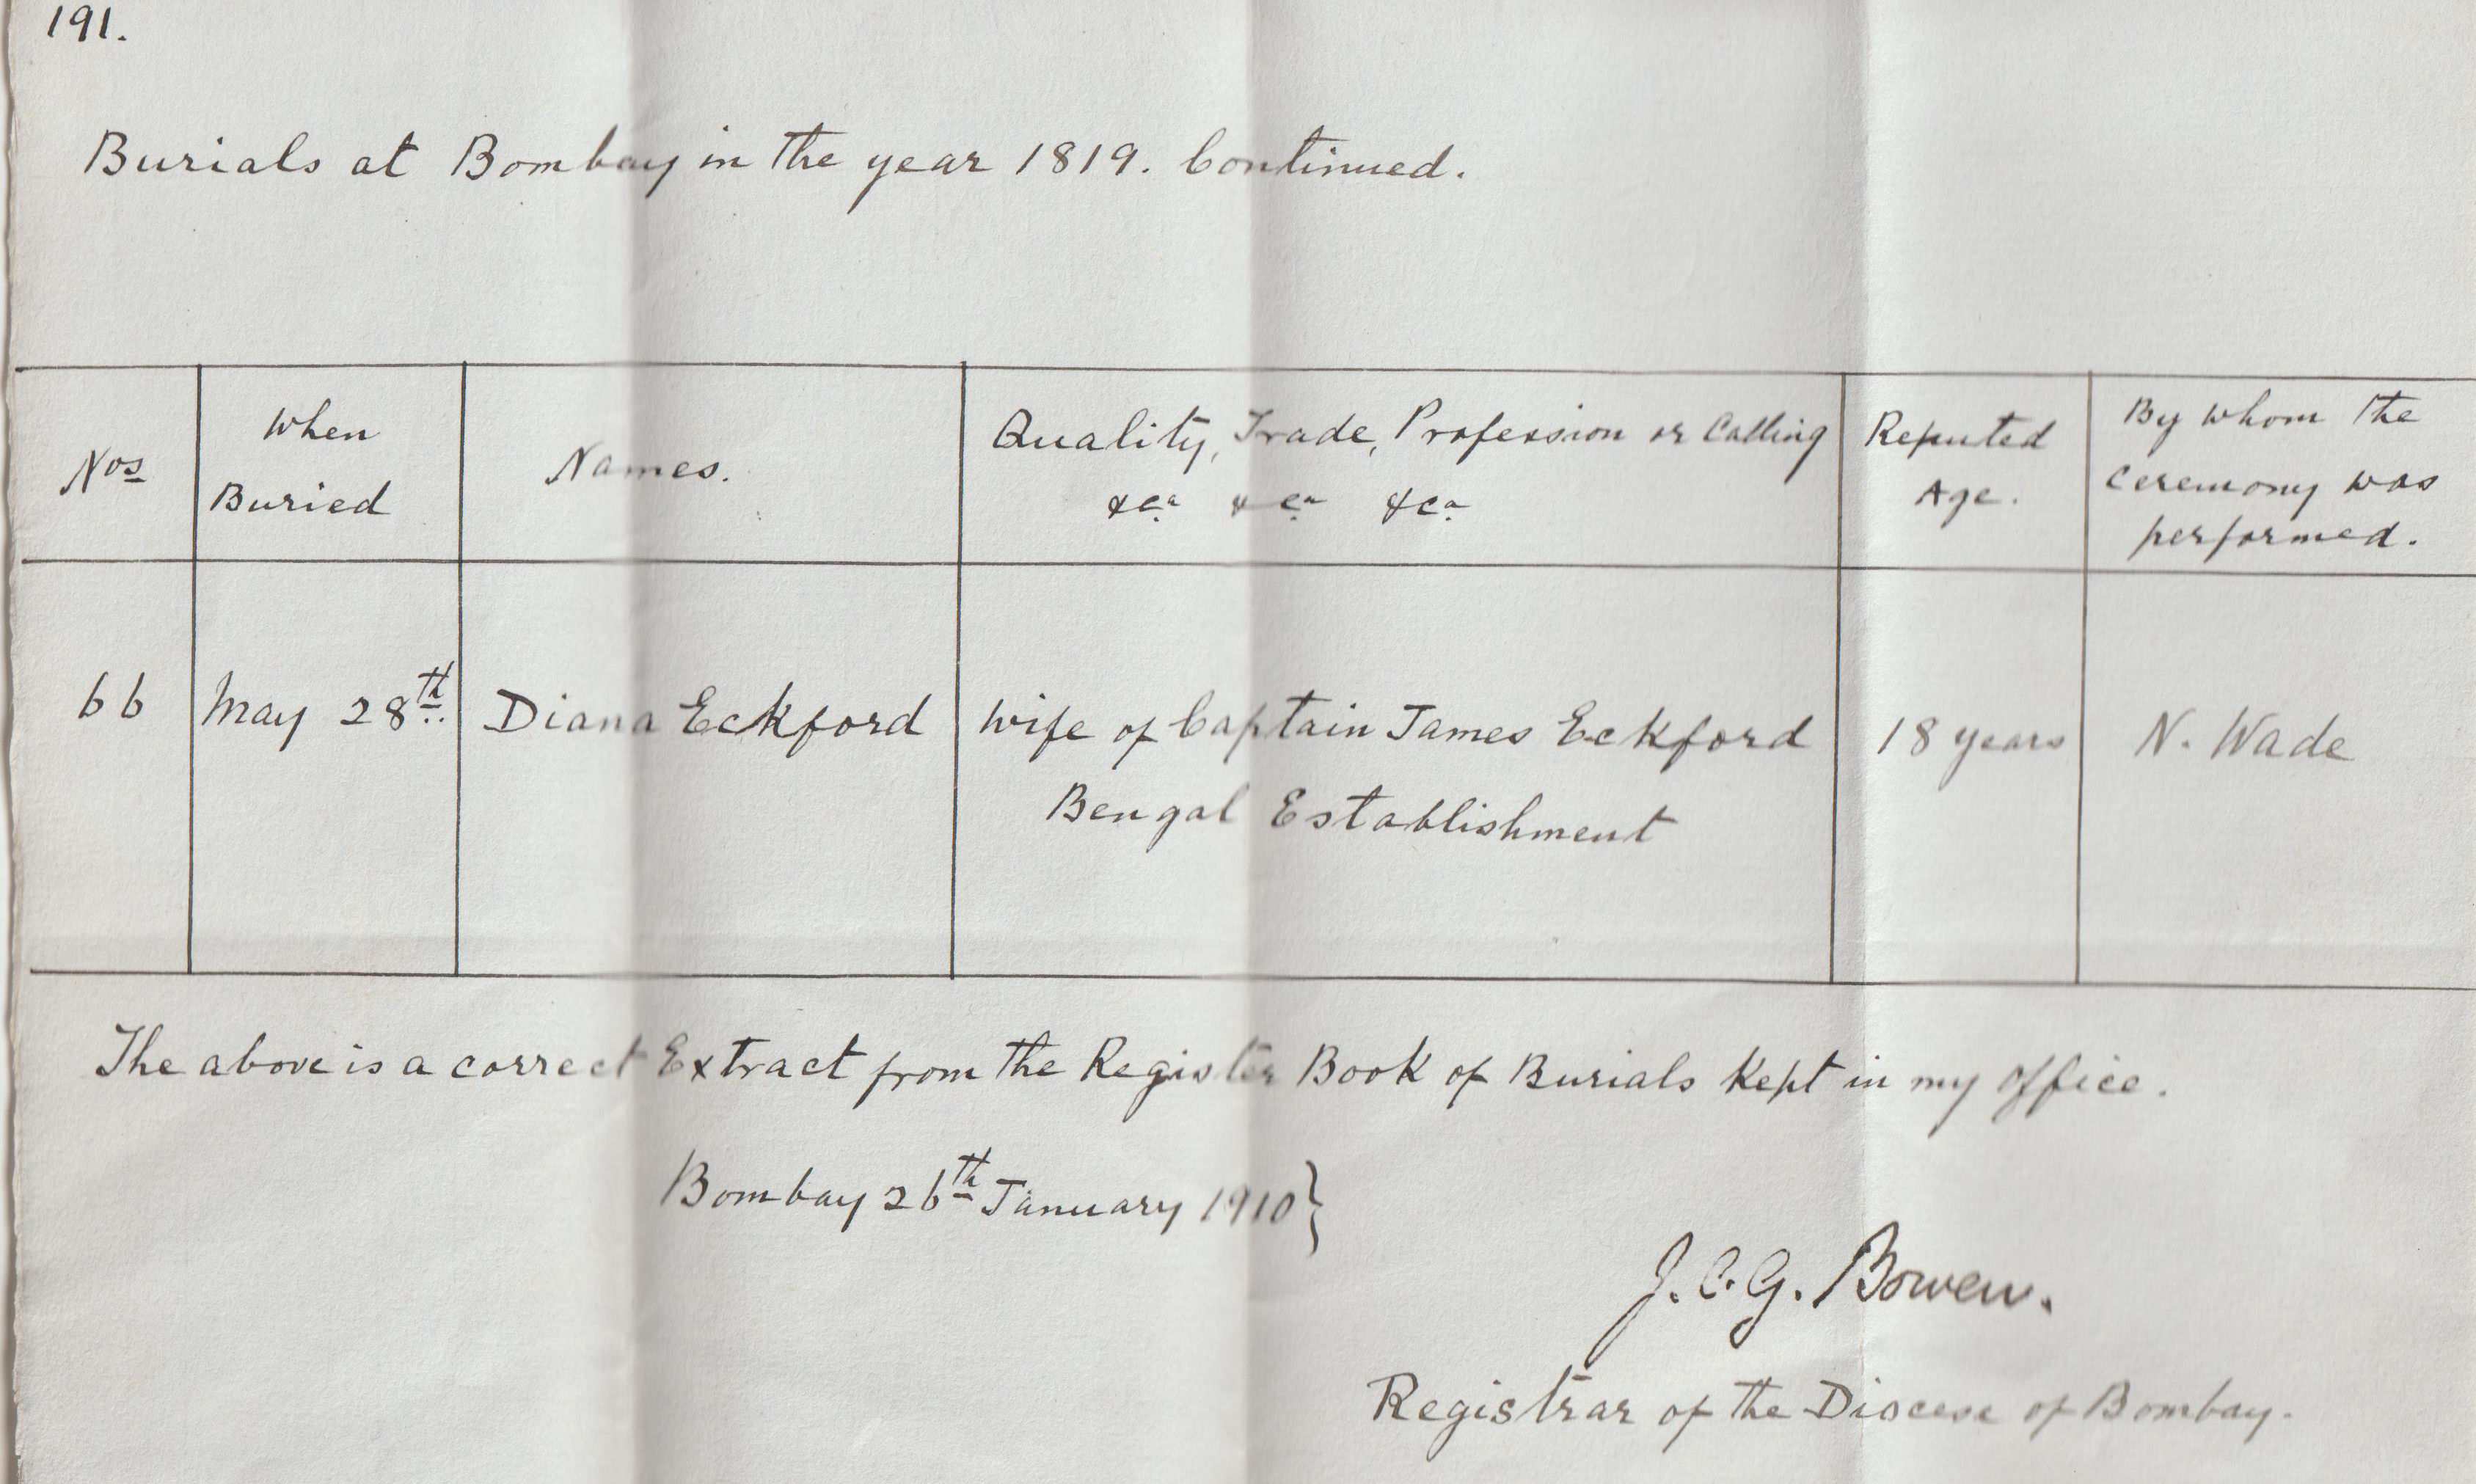 191.
Burials at Bombay in the year 1819. Continued.
Nos
When
Buried
Names.
Quality, Trade, Profession or Calling
&ca. &ca. &ca.
Reputed
Age.
By whom the
ceremony was
performed.
66
May 28th
Diana Eckford
Wife of Captain James Eckford
Bengal Establishment
18 years
N. Wade
The above is a correct Extract from the Register Book of Burials kept in my office.
Bombay 26th January 1910}
J. C. G. Bowen.
Registrar of the Diocese of Bombay.